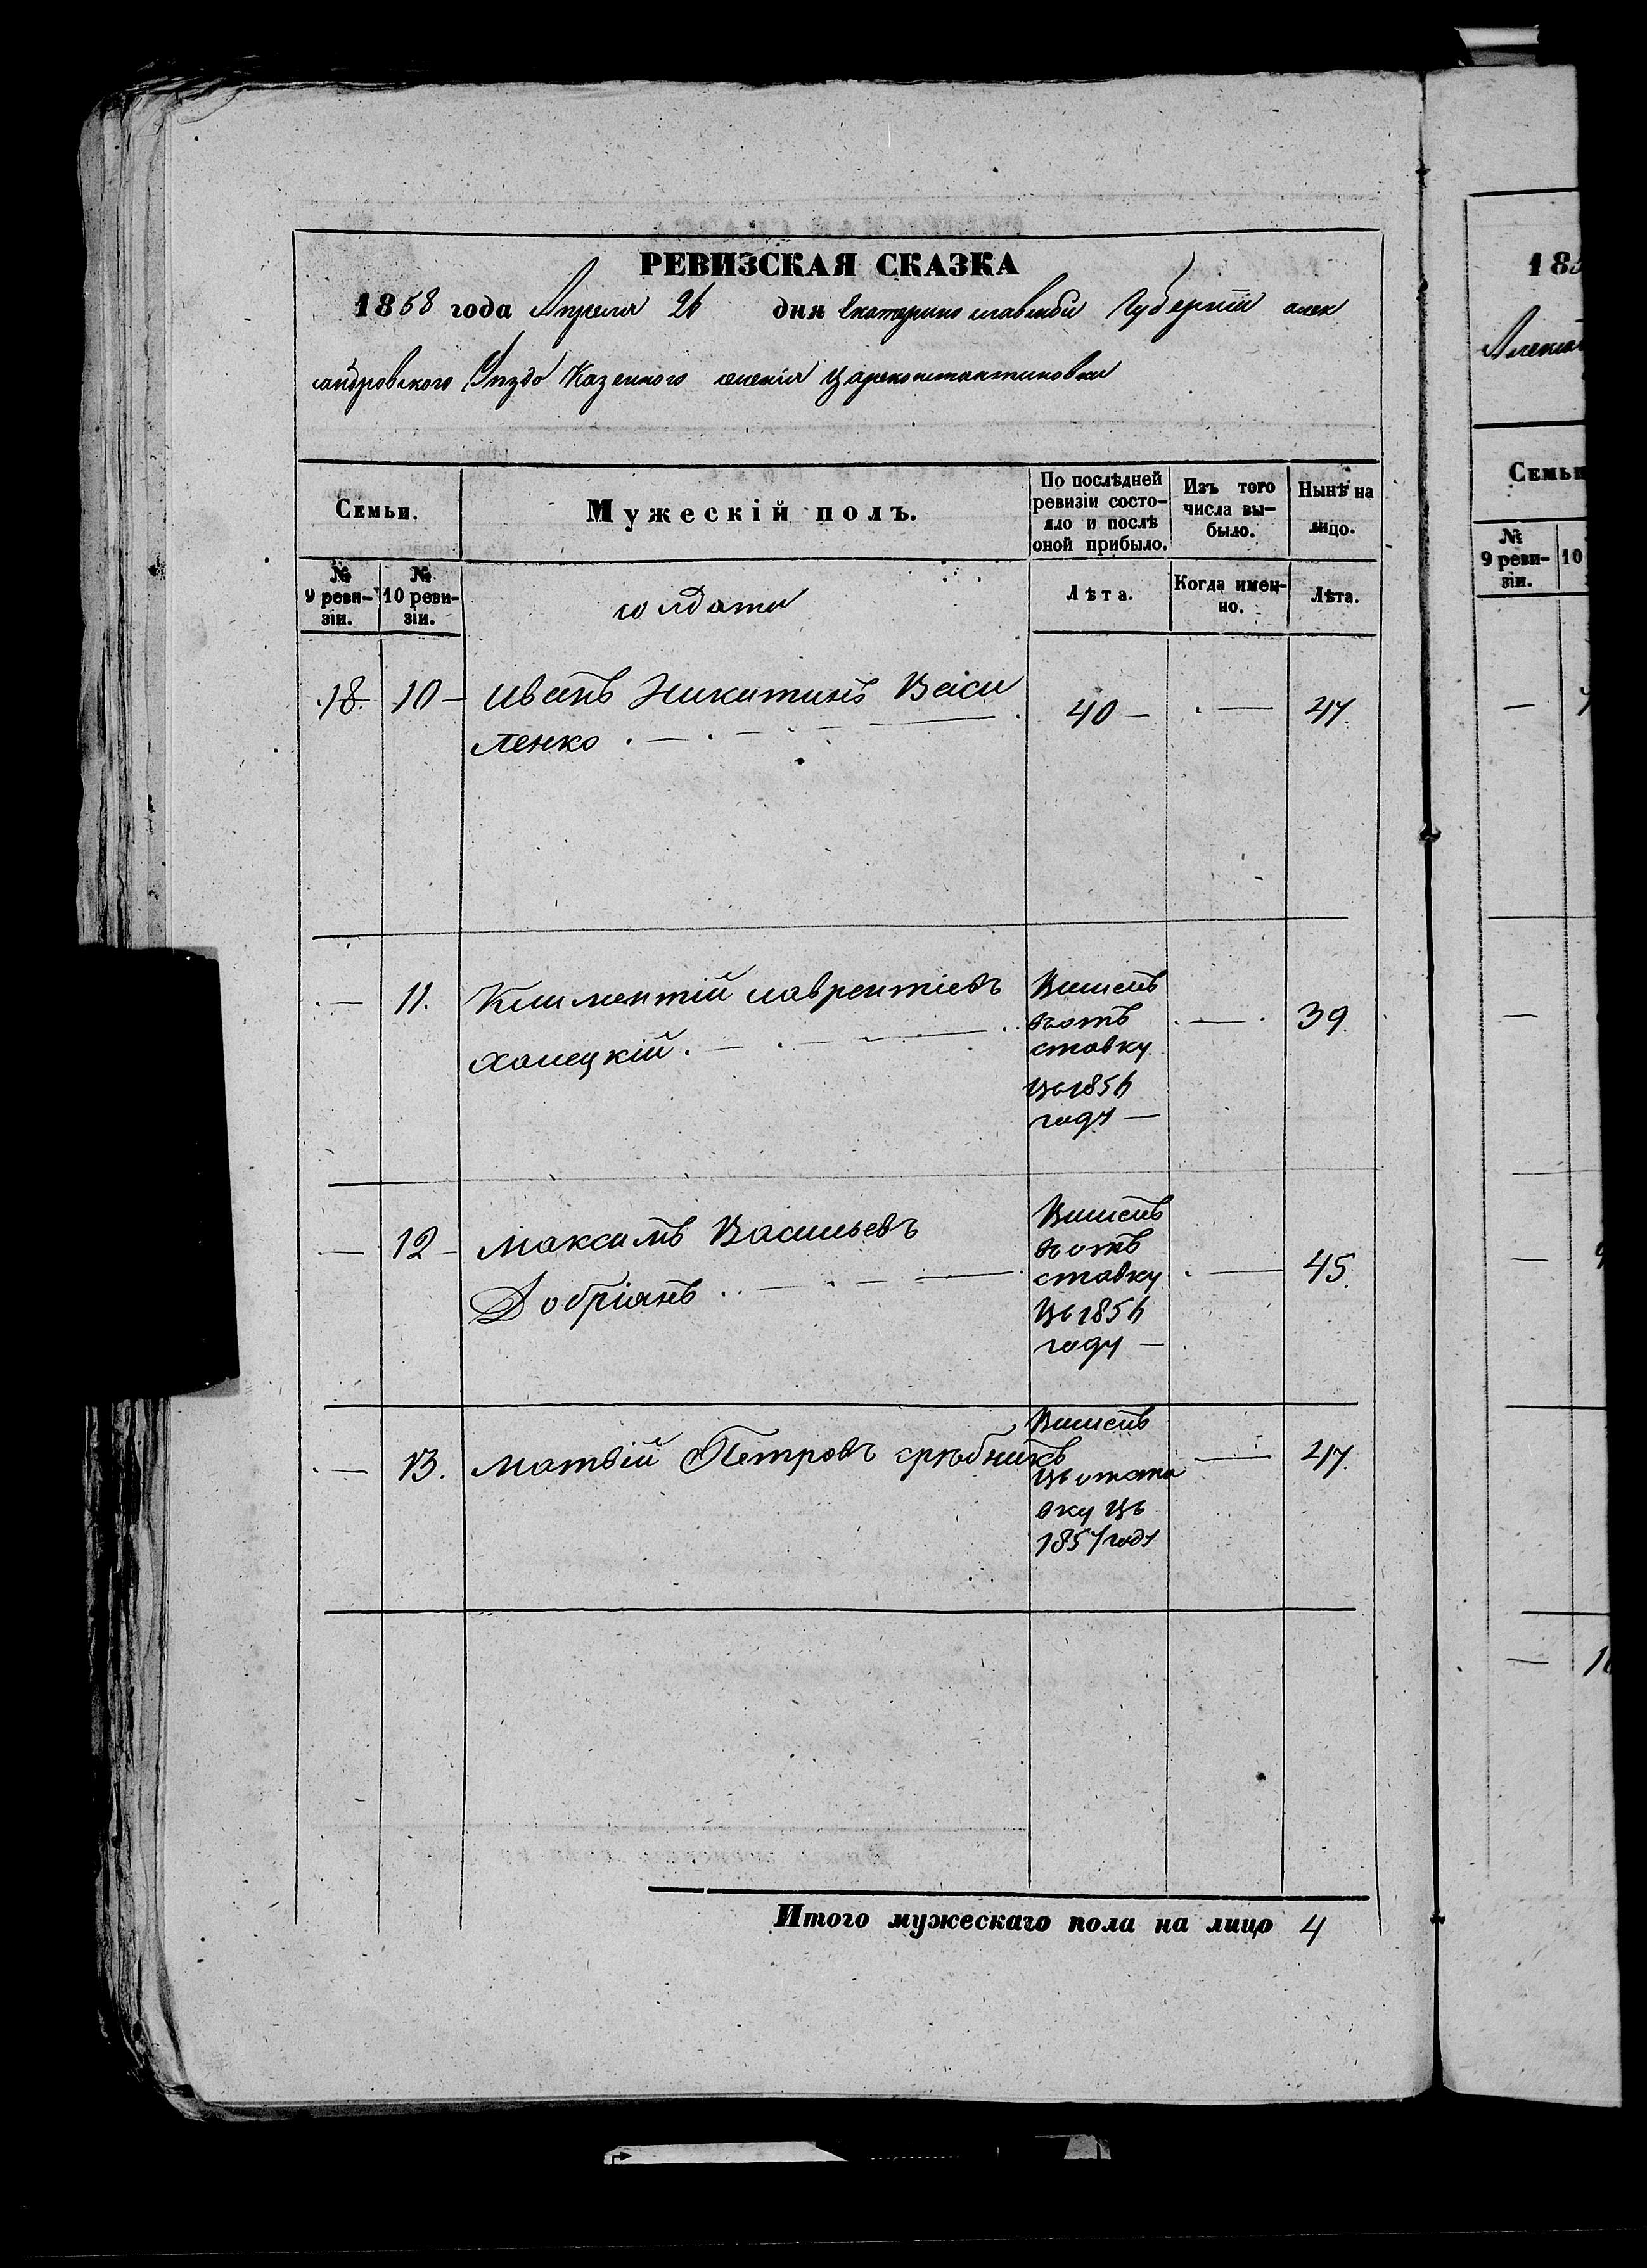 РЕВИЗСКАЯ СКАЗКА
1858 года Апреля 26 дня Екатеринославской Губернии алек
сандровского Уезда Казенного селения Цареконстантиновки
Семьи.
Мужескій полъ.
По послѣдней ревизіи состо-
яло и послѣ
оной прибыло.
Изъ того
числа вы-
было.
Нынѣ на
лицо.
№
9 реви-
зіи.
№
10 реви-
зіи.
солдаты
Лѣта.
Когда имен-
но.
Лѣта.
18 10 Иванъ Никитинъ Васи 40 47
ленко
11. Климентій лаврентіевъ
39
ставку
въ 1856
году
12 Максимъ Васильевъ
45
Добріянъ
ставку
въ 1856
году
13. Матвій Петровъ
47
въ отста
вку въ
1857 году
Итого мужескаго пола на лицо 4
185
Семьи
№
9 реви-
зіи.
10